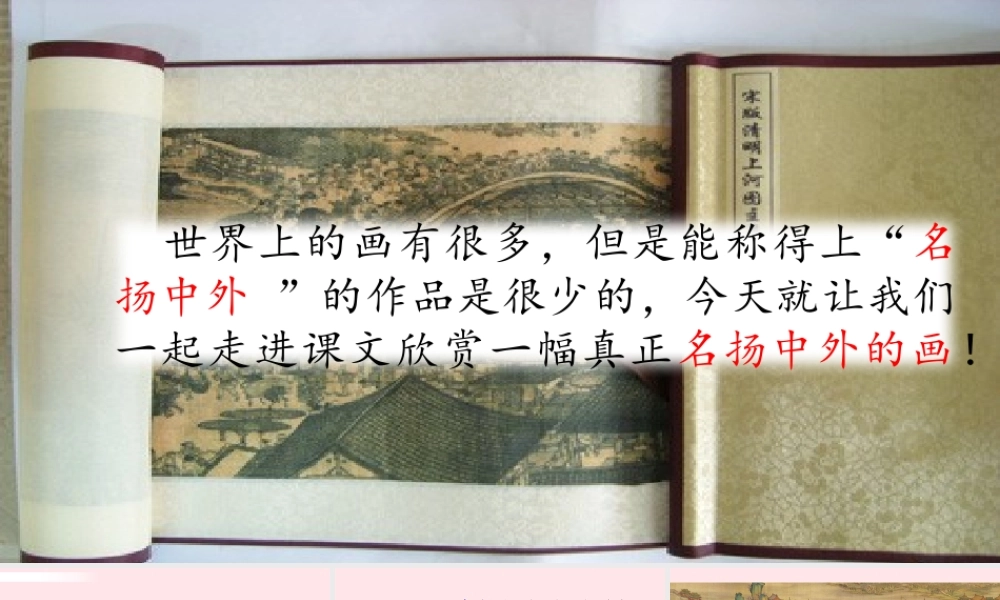 宋版清明上河图
世界上的画有很多，但是能称得上“名
扬中外 ”的作品是很少的，今天就让我们
一起走进课文欣赏一幅真正名扬中外的画！